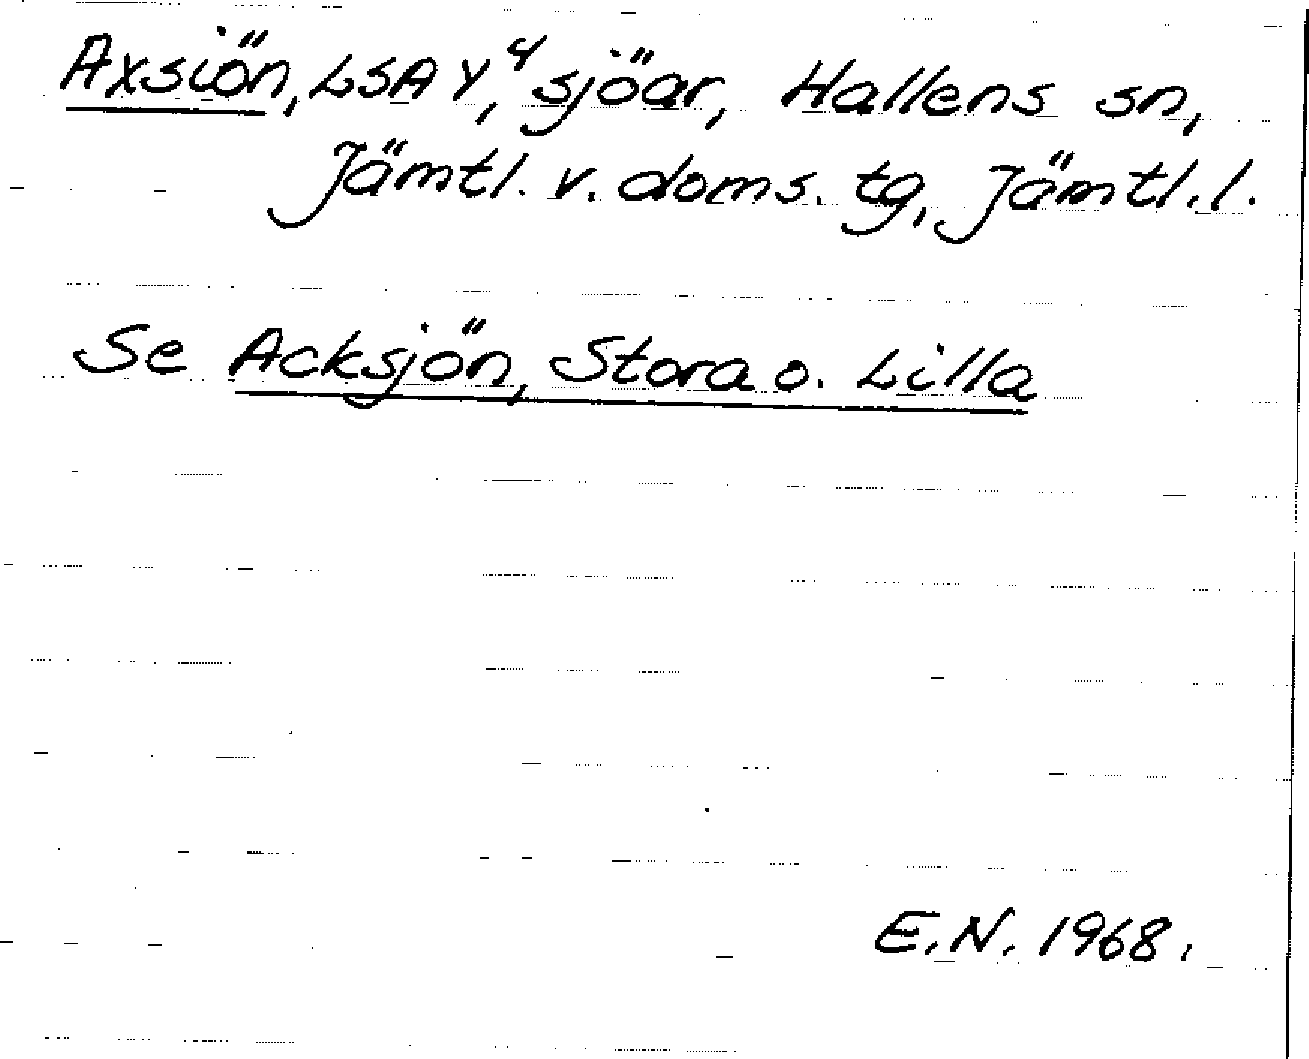 Axsiön, LSA Y,4 sjöar, Hallens sn,
Jämtl. v. doms. tg, Jämtl. l.
Se Acksjön, Stora o. Lilla
E.N. 1968.